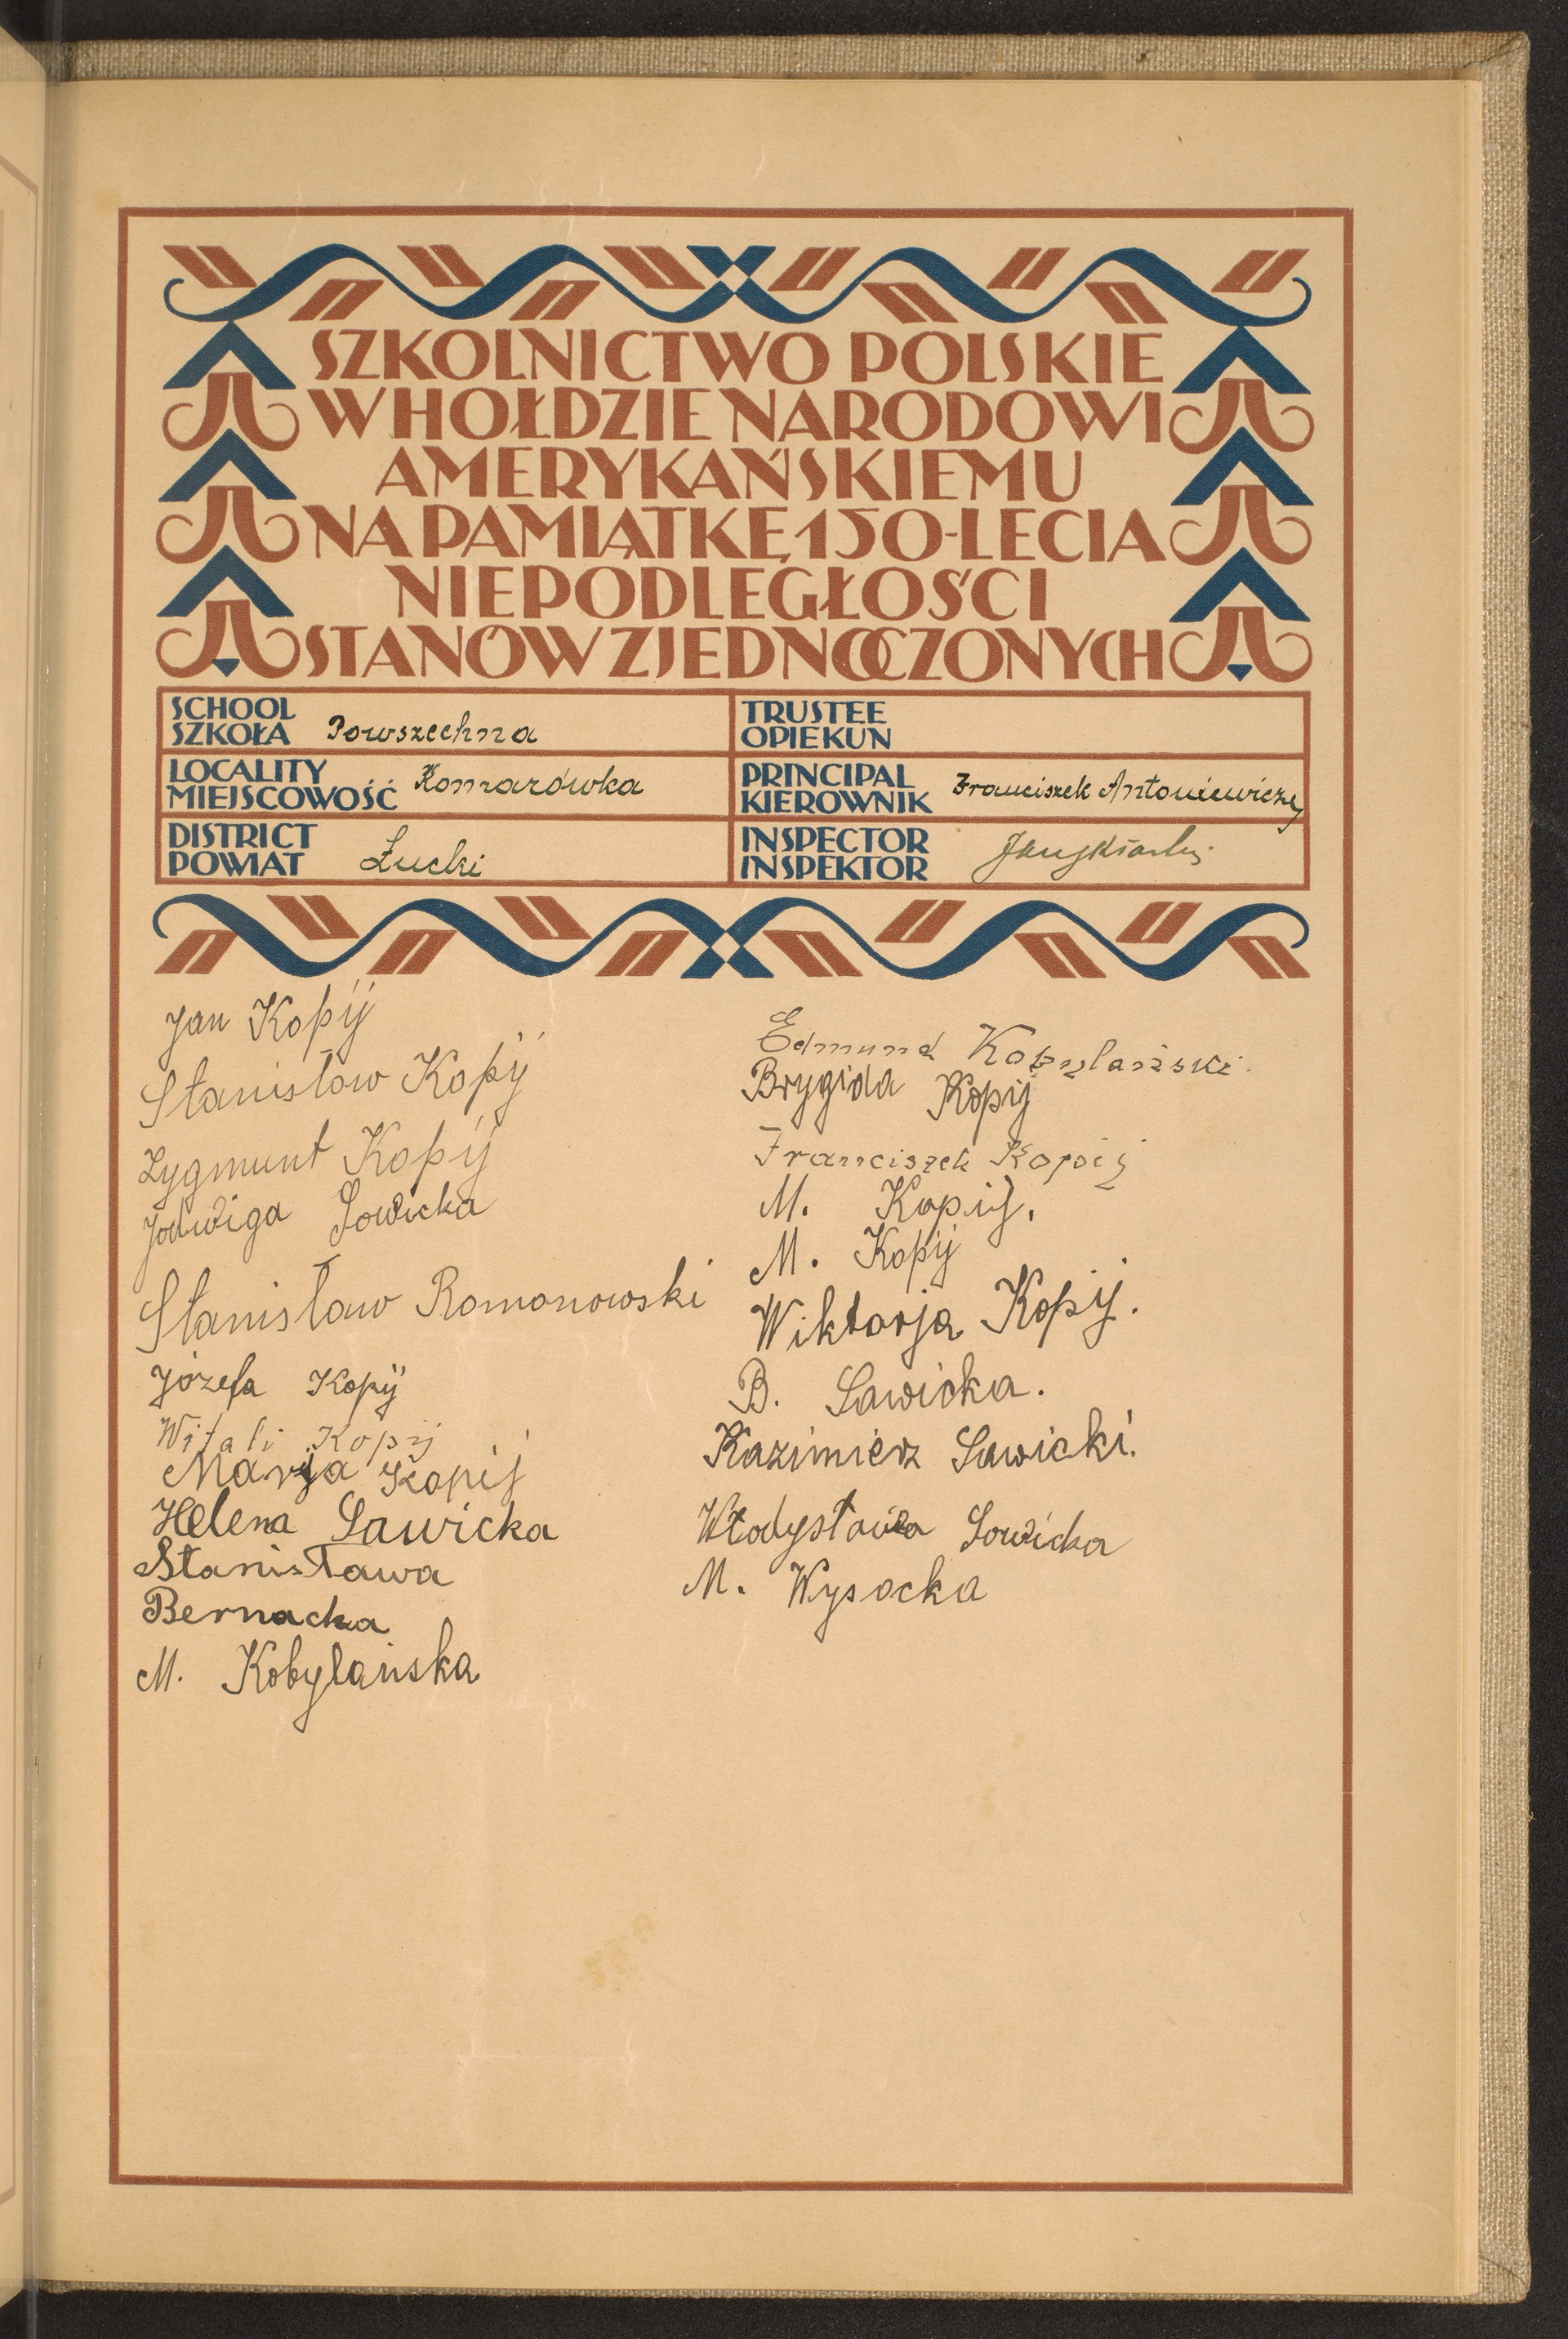 SZKOLNICTWO POLSKIE
W HOŁDZIE NARODOWI
AMERYKAŃSKIEMU
NA PAMIĄTKĘ 150-LECIA
NIEPODLEGŁOŚCI
STANÓW ZJEDNOCZONYCH
SCHOOL
SZKOŁA Powszechna
TRUSTEE
OPIEKUN
LOCALITY
MIEJSCOWOŚĆ Komarówka
PRINCIPAL
KIEROWNIK Franciszek Antoniewicz
DISTRICT
POWIAT Łucki
INSPECTOR
INSPEKTOR
Jan Kopij
Stanisław Kopij
Zygmunt Kopij
Jadwiga Sawicka
Stanisław Romanowski
Józefa Kopij
Witali Kopij
Marija Kopij
Helena Sawicka
Stanisława
Bernacka
M. Kobylańska
Edmund Kobylański.
Brygida Kopij
Franciszek Kopij
M. Kopij.
M. Kopij
Wiktorja Kopij.
B. Sawicka.
Kazimierz Sawicki.
Władysława Sawicka
M. Wysocka